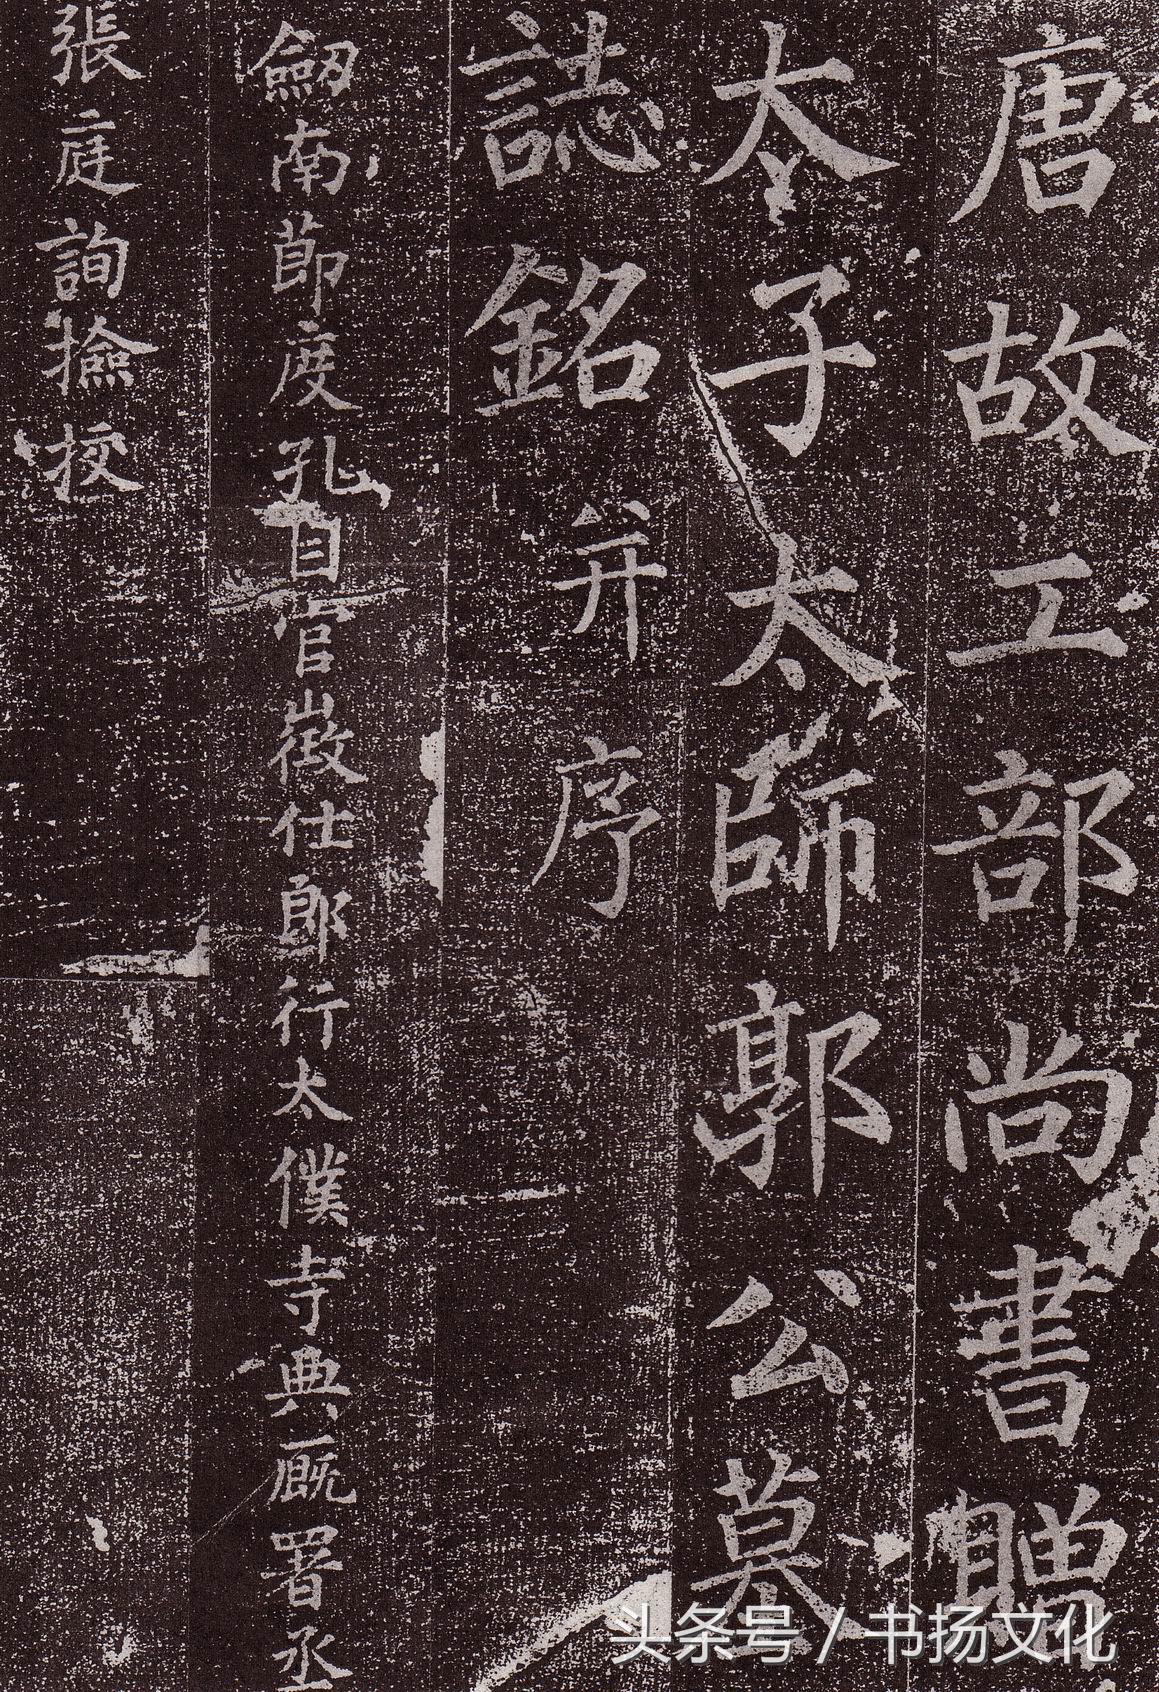 唐故工部尚書贈
太子太師郭公墓
誌銘并序
劒南節度孔目官徵仕郎行太僕寺典廐署丞
張庭詢撿挍
头条号 / 书扬文化